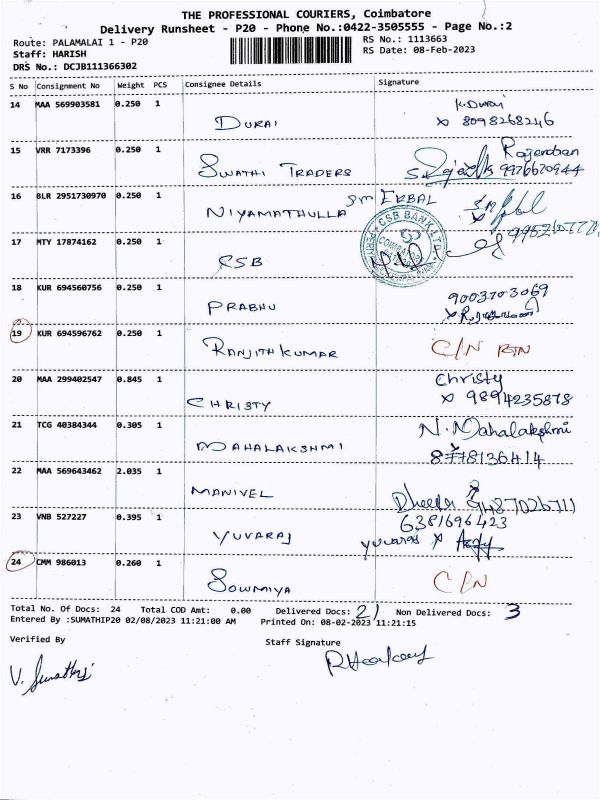 THE PROFESSIONAL COURIERS, Coimbatore
Delivery Runsheet - P20 - Phone No.:0422-3505555 - Page No.:2
Route: PALAMALAI 1 - P20
RS No.: 1113663
Staff: HARISH
RS Date: 08-Feb-2023
DRS No.: DCJB111366302
S No Consignment No Weight PCS Consignee Details Signature
14 MAA 569903581 0.250 1 DURAI K.Durai
x 8098268246
15 VRR 7173396 0.250 1 SWATHI TRADERS Rajendran
9976670944
16 BLR 2951730970 0.250 1 NIYAMATHULLA SM EKBAL
17 MTY 17874162 0.250 1 CSB
CSB BANK LTD
18 KUR 694560756 0.250 1 PRABHU 9003703069
19 KUR 694596762 0.250 1 RANJITH KUMAR C/N RTN
20 MAA 299402547 0.845 1 CHRISTY Christy
x 9894235878
21 TCG 40384344 0.305 1 MAHALAKSHMI N.Mahalakshmi
8778136414
22 MAA 569643462 2.035 1 MANIVEL 9487026711
23 VNB 527227 0.395 1 YUVARAJ 6381696423
yuvaraj x
24 CMM 986013 0.260 1 SOWMIYA C/N
Total No. Of Docs: 24 Total COD Amt: 0.00 Delivered Docs: 21 Non Delivered Docs: 3
Entered By :SUMATHIP20 02/08/2023 11:21:00 AM Printed On: 08-02-2023 11:21:15
Verified By Staff Signature
V. Sumathi